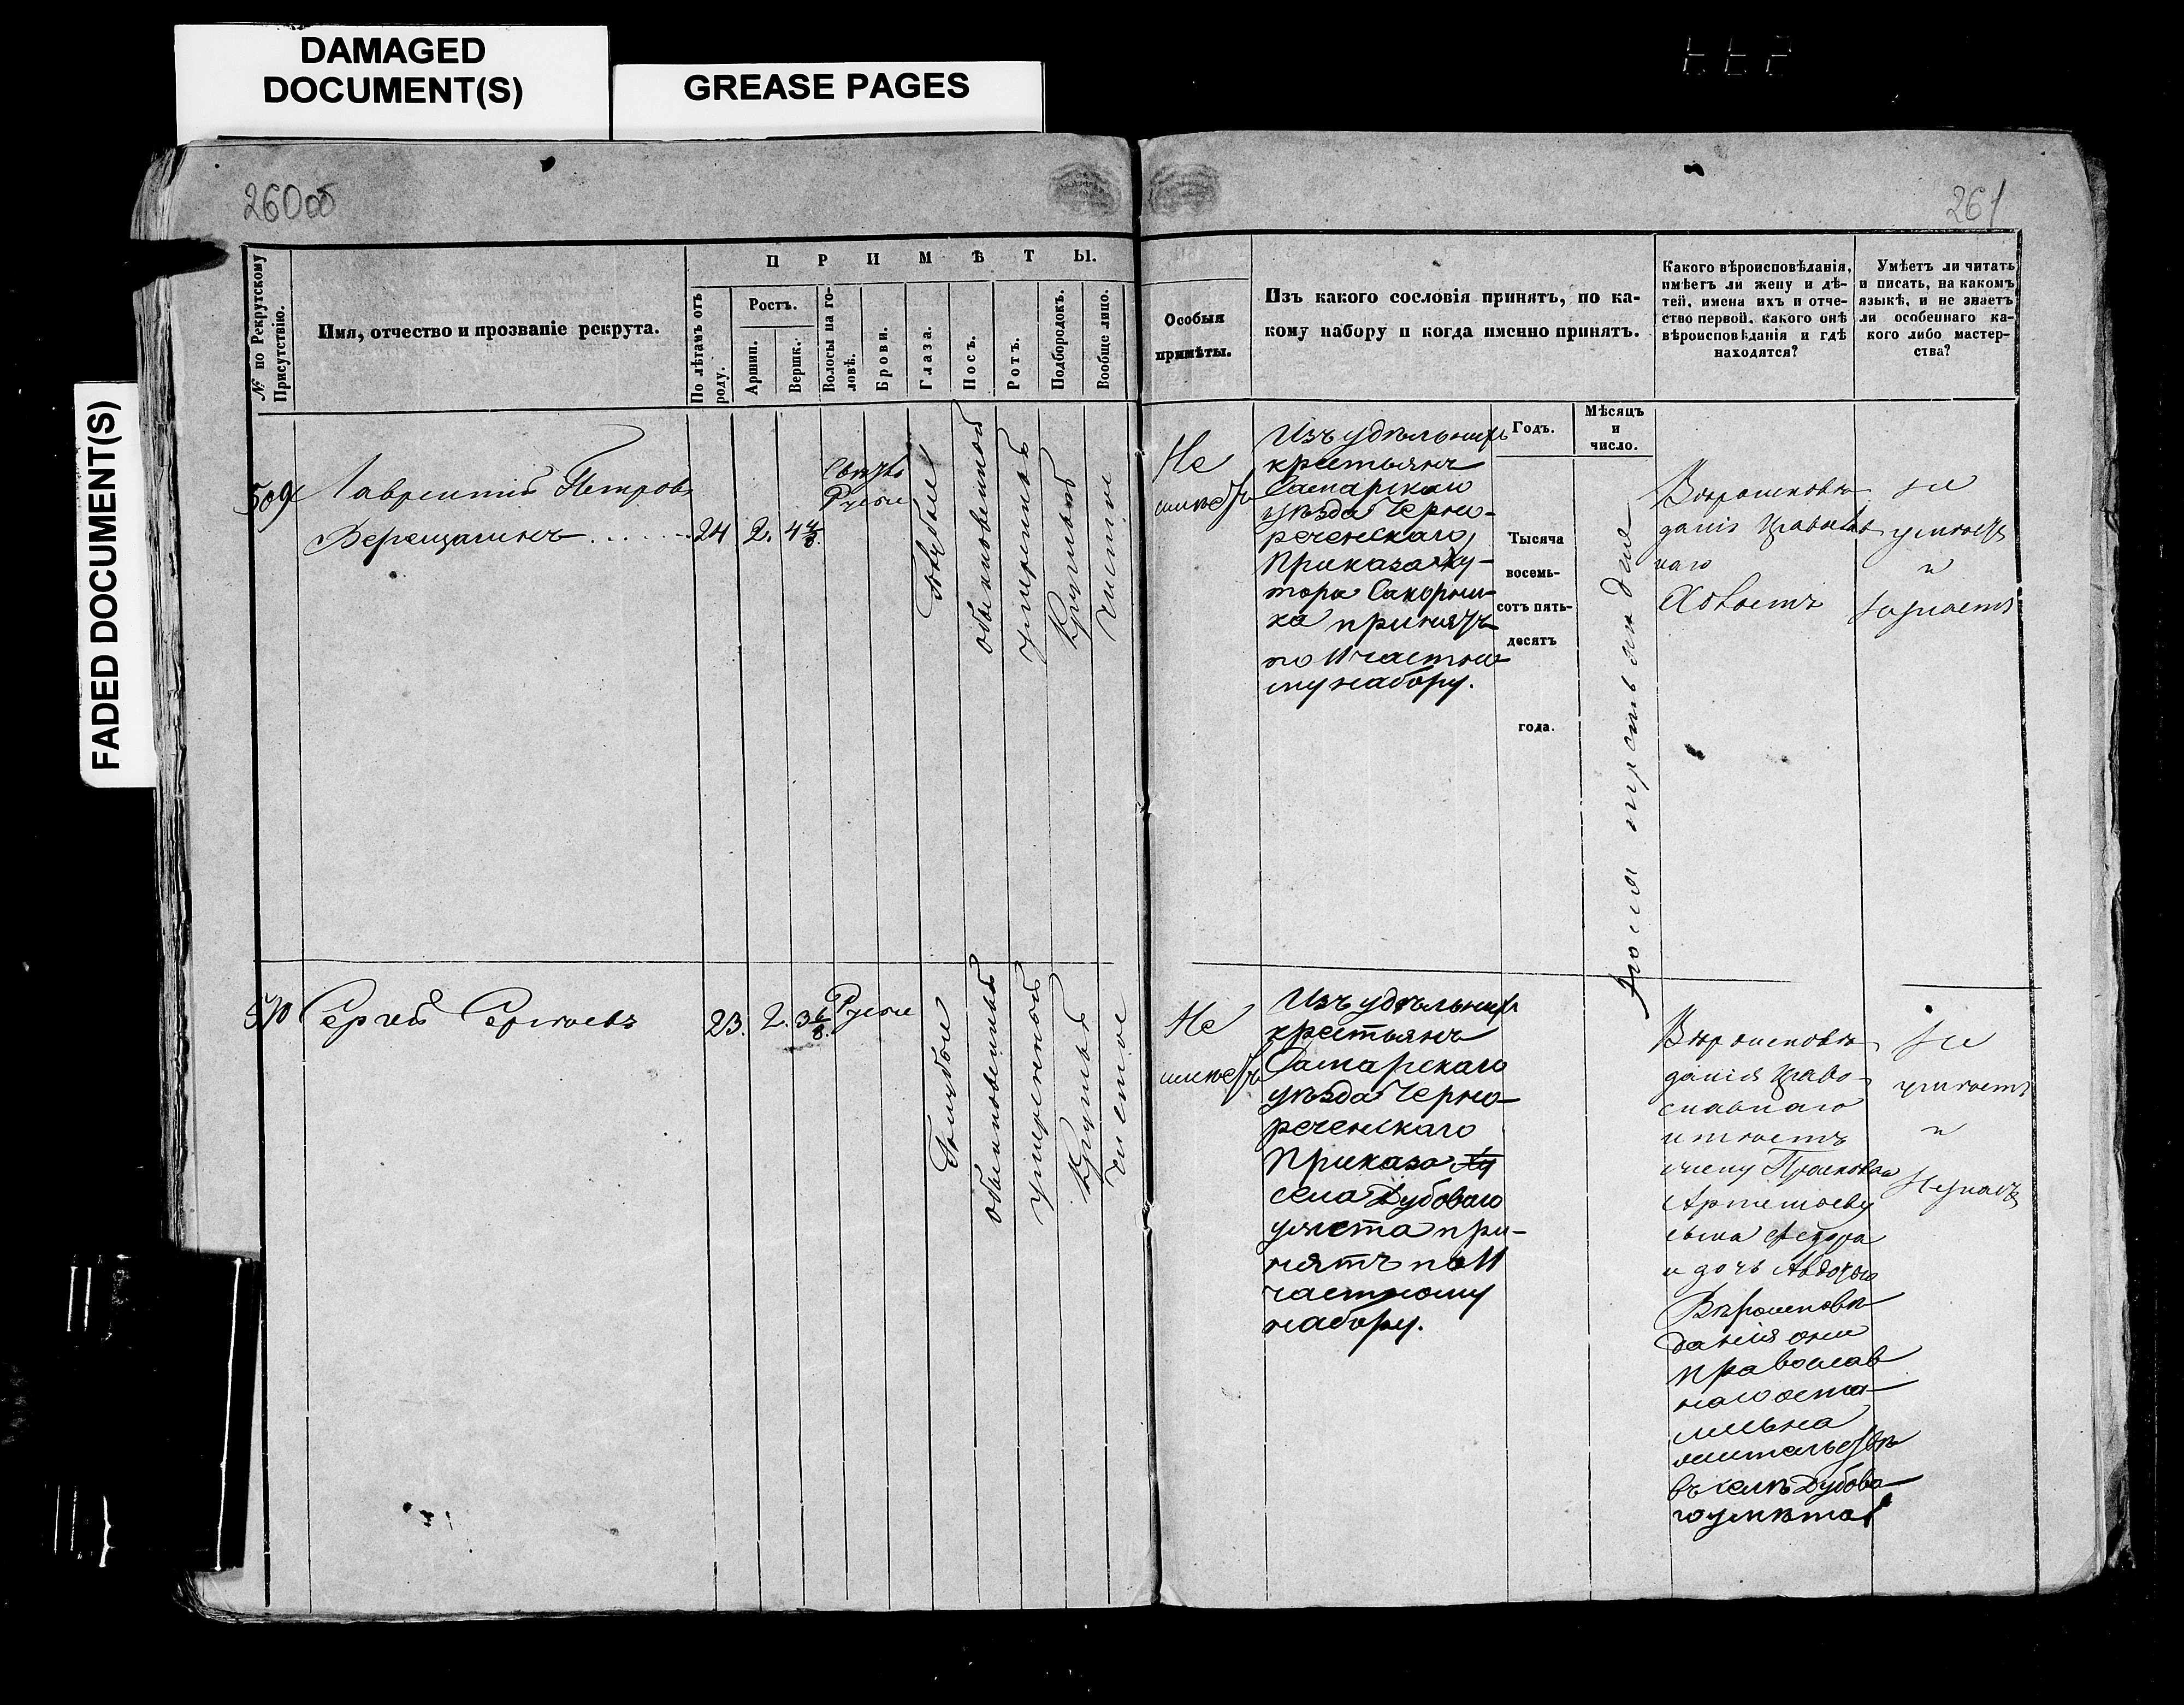 DAMAGED
DOCUMENT(S)
GREASE PAGES
FADED DOCUMENT(S)
260 об
261
№ по Рекрутскому
Присутствію.
Имя, отчество и прозваніе рекрута.
П Р И М Ѣ Т Ы.
По лѣтамъ отъ
роду.
Ростъ.
Аршин.
Вершк.
Волосы на го-
ловѣ.
Брови.
Глаза.
Носъ.
Ротъ.
Подбородокъ.
Вообще лицо.
Особыя
примѣты.
Изъ какого сословія принятъ, по ка-
кому набору и когда именно принятъ.
Какого вѣроисповѣданія,
имѣетъ ли жену и дѣ-
тей, имена ихъ и отче-
ство первой, какого онѣ
вѣроисповѣданія и гдѣ
находятся?
Умѣетъ ли читать
и писать, на какомъ
языкѣ, и не знаетъ
ли особеннаго ка-
кого либо мастер-
ства?
Годъ.
Мѣсяцъ
и
число.
509
Лаврентій Петровъ
Верещагинъ
24
2.
4 4/8.
Свѣтло
Русые
Голубые
обыкновенной
умеренный
Круглый
чистое
Не
имѣетъ
Изъ удѣльныхъ
крестьянъ
Самарскаго
уѣзда Черно-
реченскаго
Приказа Ху-
тора
принятъ
по 11 частно-
му набору.
Тысяча
восемь-
сотъ пять-
десятъ
года.
Вѣроисповѣ
данія Православ
наго
Холостъ
не
умѣетъ
и
незнаетъ
510
Сергей Сергѣевъ
23.
2.
3 6/8.
Русые
Голубые
обыкновенный
умеренный
Круглый
чистое
Не
имѣетъ
Изъ удѣльныхъ
крестьянъ
Самарскаго
уѣзда Черно-
реченскаго
Приказа Ху
села Дубоваго
умета при-
нятъ по 11
частному
набору.
Вѣроисповѣ
данія Право-
славнаго
имѣетъ
жену Прасковью
Артемьеву
сына Федора
и дочь Авдотью
Вѣроисповѣ
данія они
православ
наго
жительствѣ
въ селѣ Дубова
го умета
Не
умѣетъ
и
незнаетъ